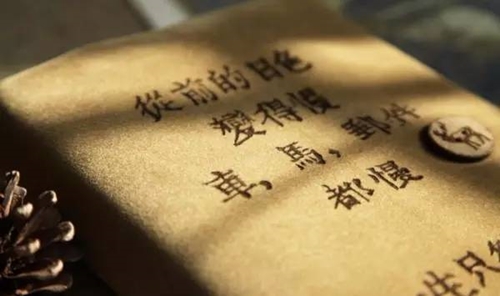 從前的日色
變得慢
車，馬，郵件
都慢
生只